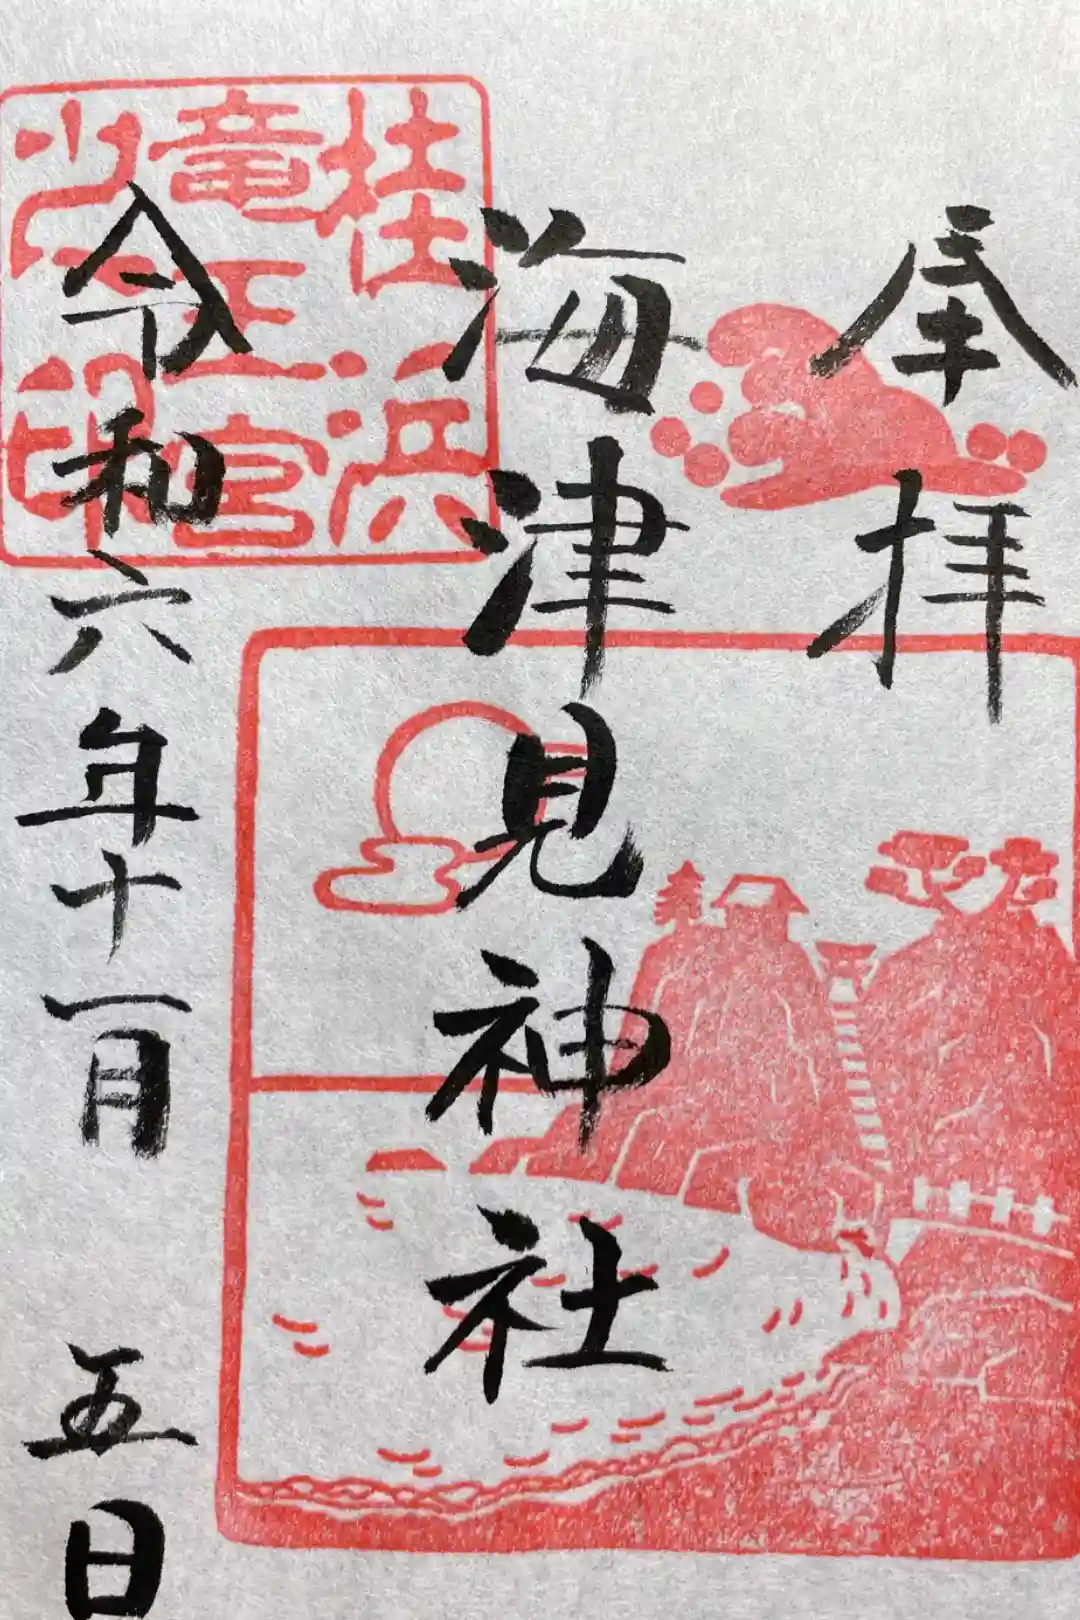 奉拝
海津見神社
令和六年十一月 五日
桂浜
竜王宮
之印